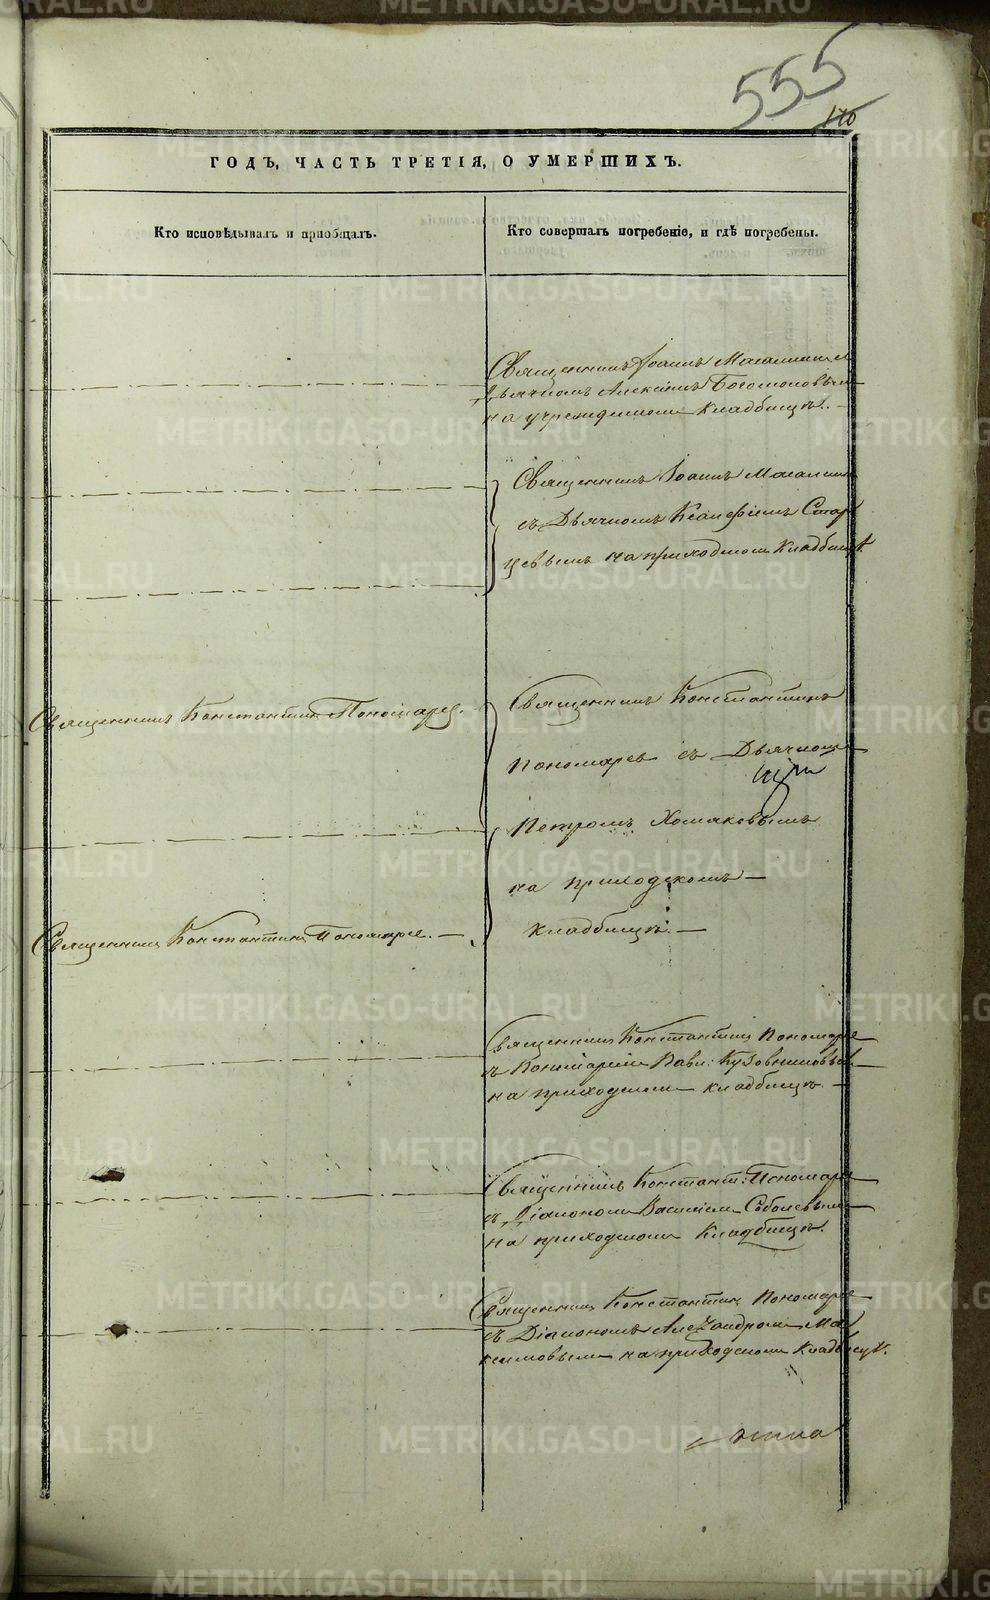 555
176
ГОДЪ, ЧАСТЬ ТРЕТІЯ, О УМЕРШИХЪ.
Кто исповѣдывалъ и пріобщалъ.
Кто совершалъ погребеніе, и гдѣ погребены.
Священникъ Іоаннъ
Дьячкомъ Алексѣемъ
на учрежденномъ кладбищѣ.
Священникъ Іоаннъ
съ Дьячкомъ Стар
цевымъ на приходскомъ кладбищѣ
Священникъ Константинъ Пономарев.
Священникъ Константинъ
Пономаревъ съ Дьячкомъ
Петромъ Хомяковымъ
на приходскомъ
кладбищѣ.
Священникъ Константинъ Пономарев.
Священникъ Константинъ Пономарев
съ Пономаремъ Павл: Кузовниковымъ
на приходскомъ кладбищѣ.
Священникъ Констант: Пономарев
съ Діакономъ Василіем Соболевым
на приходскомъ кладбищѣ.
Священникъ Константинъ Пономарев
съ Діакономъ Александромъ Ма
ксимовымъ на приходскомъ кладбищѣ.
METRIKI.GASO-URAL.RU